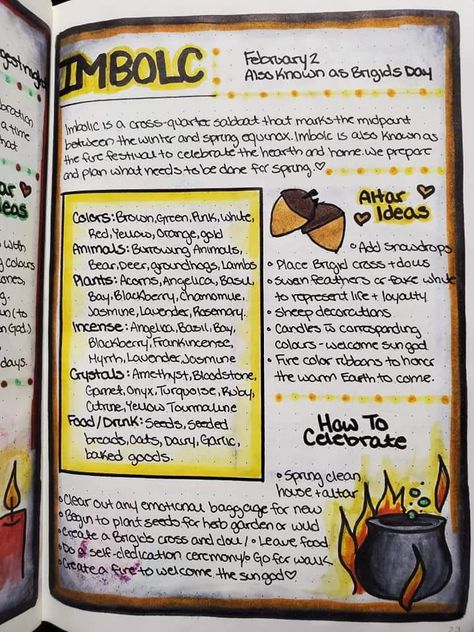 IMBOLC
February 2
Also Known as Brigids Day
Imbolic is a cross-quarter sabbat that marks the midpant
between the winter and spring equinox. Imbolc is also known as
the fire festival to celebrate the hearth and home. We prepare
and plan what needs to be done for spring.
Colors: Brown, Green, Pink, White,
Red, Yellow, Orange, gold
Animals: Burrowing Animals,
Bear, Deer, groundhogs, Lambs
Plants: Acorns, Angelica, Basil,
Bay, Blackberry, Chamomile,
Jasmine, Lavender, Rosemary.
Incense: Angelica, Basil, Bay,
Blackberry, Frankincense,
Myrrh, Lavender, Jasmine
Crystals: Amethyst, Bloodstone,
Garnet, Onyx, Turquoise, Ruby,
Citrine, Yellow Tourmaline
Food/Drink: Seeds, seeded
breads, Oats, Dairy, Garlic,
baked goods.
Altar
Ideas
• Add snowdrops
• Place Brigid cross + dolls
• Swan feathers or fake white
to represent life + loyalty
• sheep decorations
• Candles is corresponding
colours - welcome sun god
• Fire color ribbons to honor
the warm Earth to come.
How To
Celebrate
• Spring clean
house + altar
• Clear out any emotional baggage for new
• Begin to plant seeds for herb garden or wild
• Create a Brigids cross and doll/• Leave food
• Do a self-dedication ceremony • Go for walk
• Create a fire to welcome the sun god
ar
deas
with
days.